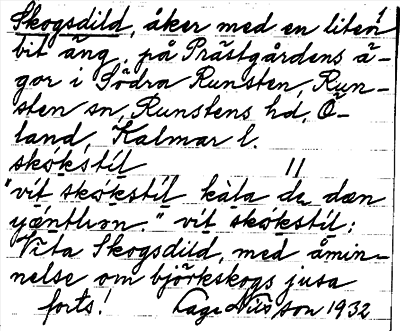 1
Skogsdild, åker med en liten
bit äng, på Prästgårdens ä-
gor i Södra Runsten, Run-
sten sn, Runstens hd, Ö-
land, Kalmar l.
skókstìl "
"vit skókstìl kàla du dæn
" vit skókstìl:
Vita Skogsdild, med åmin-
nelse om björkskogs jusa
forts! Lage Nilsson 1932